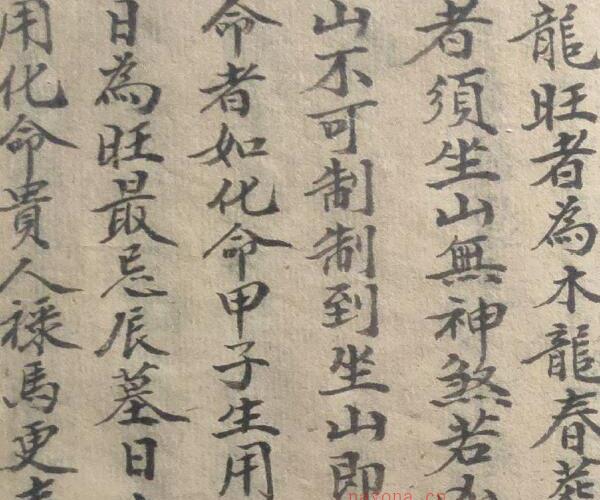 龍旺者為木龍春葬
者須坐山無神煞若
山不可制制到坐山即
命者如化命甲子生用
日為旺最忌辰墓日
用化命貴人祿馬更